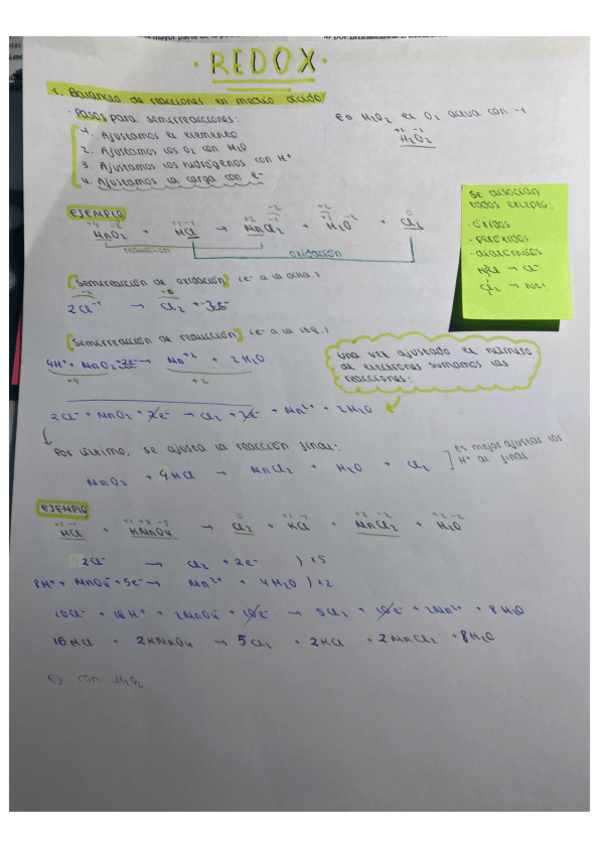 mayor parte de la
· REDOX ·
1. Balanceo de reacciones en medio ácido
· Pasos para semirreacciones:
1. Ajustamos el elemento
2. Ajustamos los O₂ con H₂O
3. Ajustamos los hidrógenos con H⁺
4. Ajustamos la carga con e⁻
En H₂O₂ el O₂ actua con -1
+1 -1
H₂O₂
Se disocian
todos excepto:
· óxidos
· peróxidos
· diatómicos
EJEMPLO
MnO₂ + HCl → MnCl₂ + H₂O + Cl₂
reducción
oxidación
[Semirreacción de oxidación] (e⁻ a la dcha.)
2Cl⁻¹ → Cl₂ +
[Semirreacción de reducción] (e⁻ a la izq.)
4H⁺ + MnO₂ + → Mn⁺² + 2H₂O
+4 +2
Una vez ajustado el número
de electrones sumamos las
reacciones:
2Cl⁻ + MnO₂ + 2e⁻ → Cl₂ + 2e⁻ + Mn²⁺ + 2H₂O
Por último, se ajusta la reacción final:
MnO₂ + 4HCl → MnCl₂ + H₂O + Cl₂
Es mejor ajustar los
H⁺ al final
EJEMPLO
HCl + KMnO₄ → Cl₂ + KCl + MnCl₂ + H₂O
2Cl⁻ → Cl₂ + 2e⁻ ) x5
8H⁺ + MnO₄⁻ + 5e⁻ → Mn²⁺ + 4H₂O ) x2
10Cl⁻ + 16H⁺ + 2MnO₄⁻ + 10e⁻ → 5Cl₂ + 10e⁻ + 2Mn²⁺ + 8H₂O
16HCl + 2KMnO₄ → 5Cl₂ + 2KCl + 2MnCl₂ + 8H₂O
Ej con